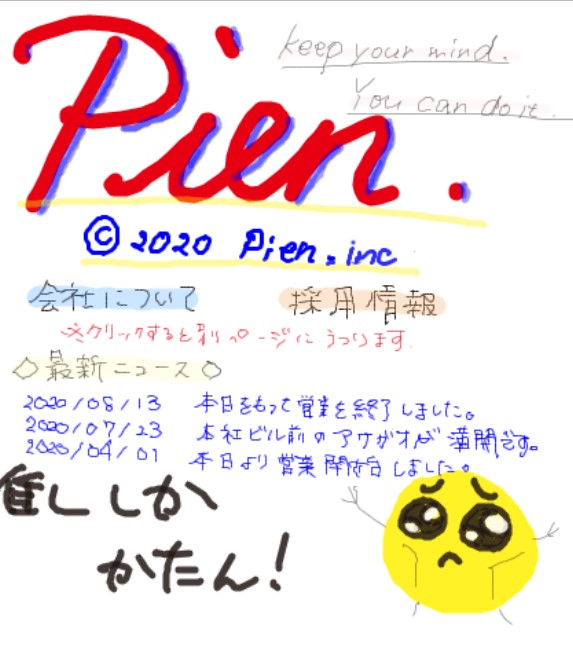 Pien.
Keep your mind.
You can do it.
© 2020 Pien.inc
会社について 採用情報
※クリックすると別ページにうつります
◇最新ニュース◇
2020/08/13 本日をもって営業を終了しました。
2020/07/23 本社ビル前のアサガオが満開です。
2020/04/01 本日より営業開始しました。
しか
かたん!